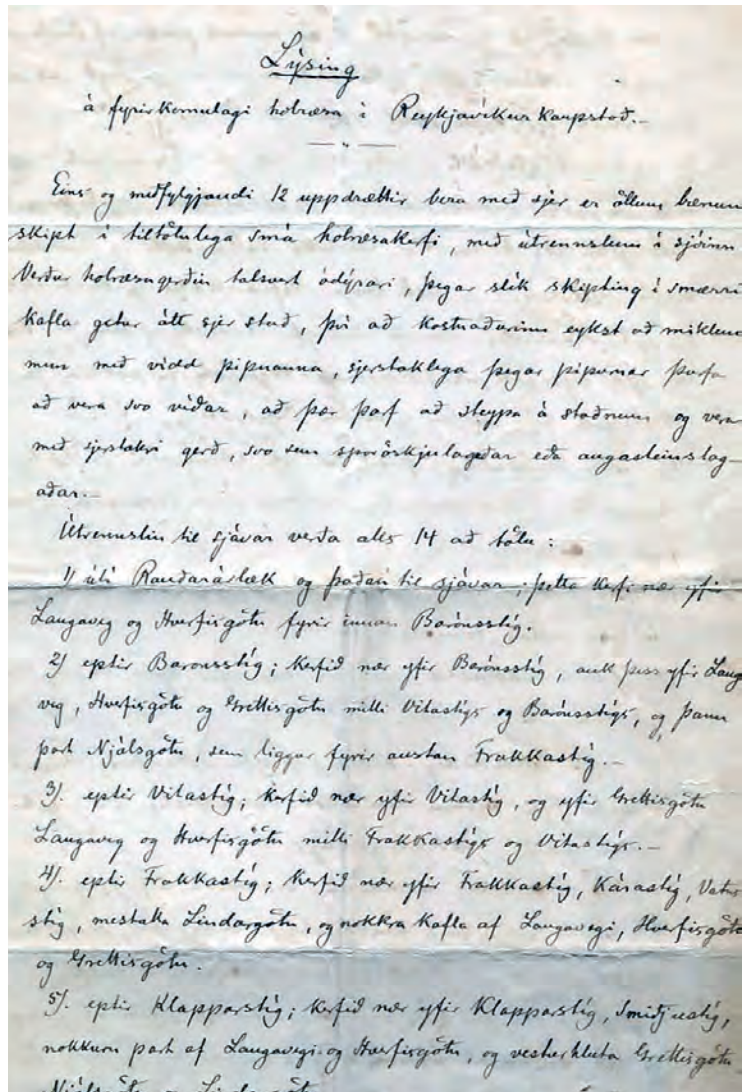 Lýsing
á fyrirkomulagi holræsa í Reykjavíkur kaupstað.-
Eins og meðfylgjandi 12 uppdrættir bera með sjer er öllum bænum
skipt í tiltölulega smá holræsakerfi, með útrennslum í sjóinn
Verður holræsagerðin talsvert ódýrari, þegar slík skipting í smærri
kafla getur átt sjer stað, því að kostnaðurinn eykst að miklum
mun með vídd pípnanna, sjerstaklega þegar pípurnar þurfa
að vera svo víðar, að þær þarf að steypa á staðnum og vera
með sjerstakri gerð, svo sem sporöskjulagaðar eða augasteinslag-
aðar.-
Útrennslin til sjávar verða alls 14 að tölu:
1) úti Rauðarárlæk og þaðan til sjávar; þetta kerfi nær yfir
Laugaveg og Hverfisgötu fyrir innan Barónsstíg.
2) eptir Baronsstíg; kerfið nær yfir Barónsstíg, auk þess yfir Lauga
veg, Hverfisgötu og Grettisgötu milli Vitastígs og Barónsstígs, og þann
part Njálsgötu, sem liggur fyrir austan Frakkastíg.-
3). eptir Vitastíg; kerfið nær yfir Vitastíg, og yfir Grettisgötu
Laugaveg og Hverfisgötu milli Frakkastígs og Vitastígs.-
4). eptir Frakkastíg; kerfið nær yfir Frakkastíg, Kárastíg, Vatns
stíg, mestalla Lindargötu, og nokkra kafla af Laugavegi, Hverfisgötu
og Grettisgötu.
5). eptir Klapparstíg; kerfið nær yfir Klapparstíg, Smiðjustíg,
nokkurn part af Laugavegi og Hverfisgötu, og vesturhluta Grettisgötu
Njálsgötu og Lindargötu